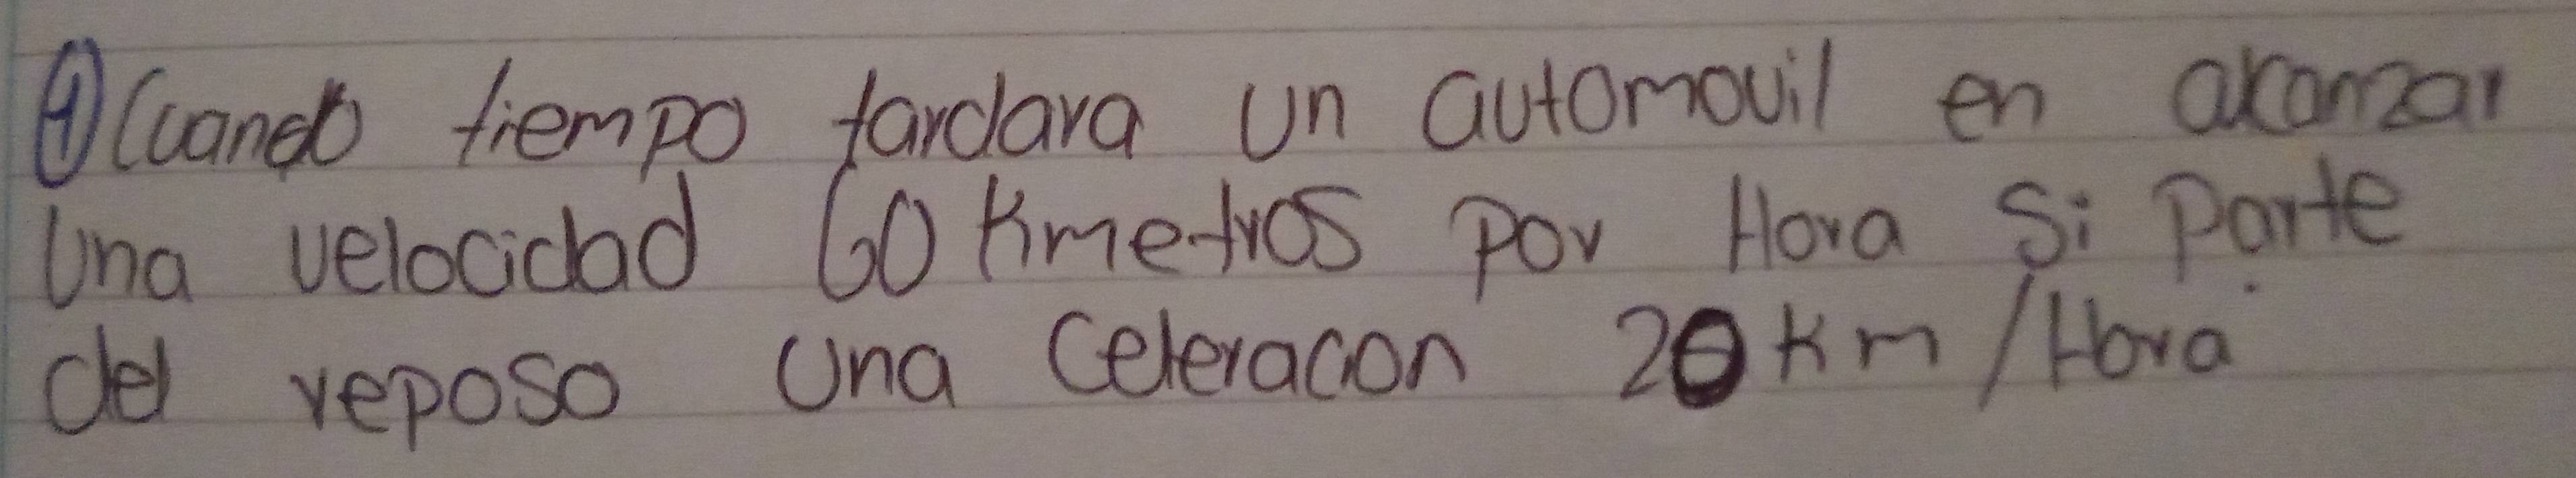 ① Cuando tiempo tardara un automovil en alcanzar
una velocidad 60 Kmetros por Hora si parte
del reposo una celeracon 20 Km/Hora